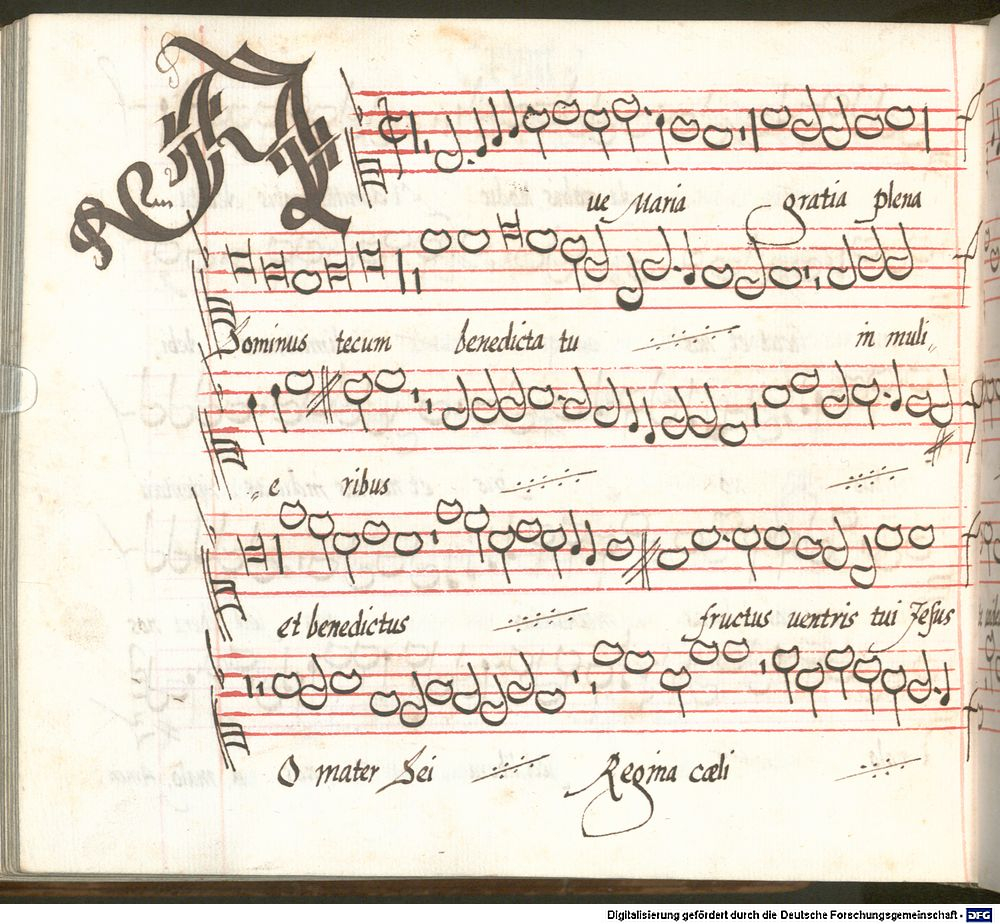 A
ue Maria gratia plena
Dominus tecum benedicta tu in muli„
„e ribus
et benedictus fructus ventris tui Jesus
O mater Dei Regina cæli
Digitalisierung gefördert durch die Deutsche Forschungsgemeinschaft - DFG